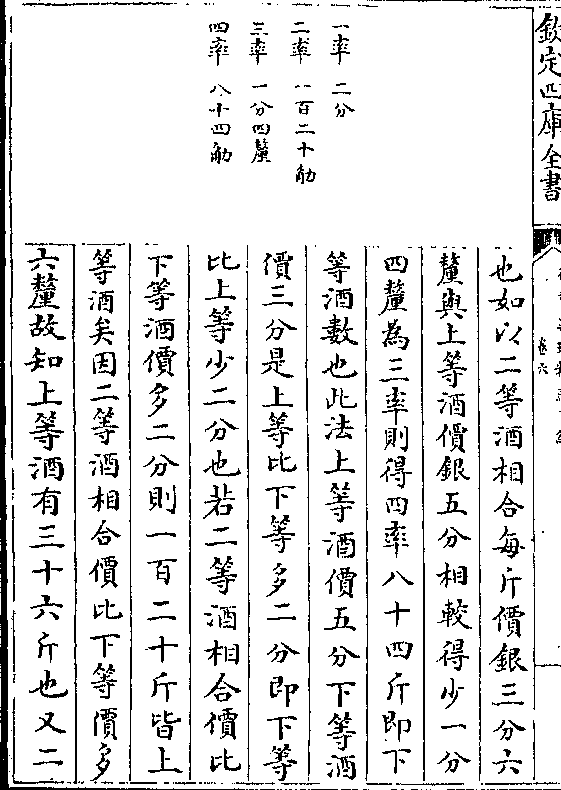 欽定四庫全書
卷六
一率 二分
二率 一百二十觔
三率 一分四釐
四率 八十四觔
也如以二等酒相合每斤價銀三分六
釐與上等酒價銀五分相較得少一分
四釐為三率則得四率八十四斤即下
等酒數也此法上等酒價五分下等酒
價三分是上等比下等多二分即下等
比上等少二分也若二等酒相合價比
下等酒價多二分則一百二十斤皆上
等酒矣因二等酒相合價比下等價多
六釐故知上等酒有三十六斤也又二